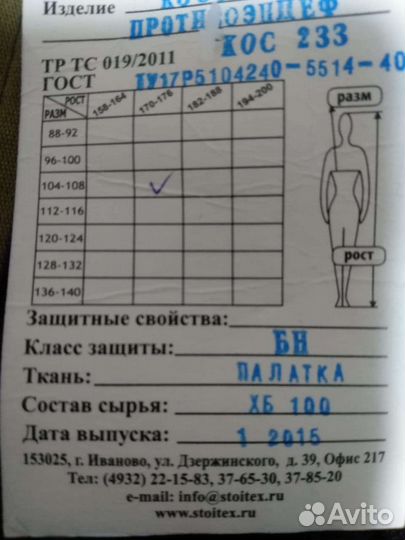 Изделие
КОС 233
ТР ТС 019/2011
ГОСТ ТУ17Р5104240-5514-40
РОСТ
РАЗМ
158-164
170-176
182-188
194-200
88-92
96-100
104-108
112-116
120-124
128-132
136-140
разм
рост
Защитные свойства:
Класс защиты: БН
Ткань: ПАЛАТКА
Состав сырья: ХБ 100
Дата выпуска: 1 2015
153025, г. Иваново, ул. Дзержинского, д. 39, Офис 217
Тел: (4932) 22-15-83, 37-65-30, 37-85-20
e-mail: info@stoitex.ru
www.stoitex.ru
Avito